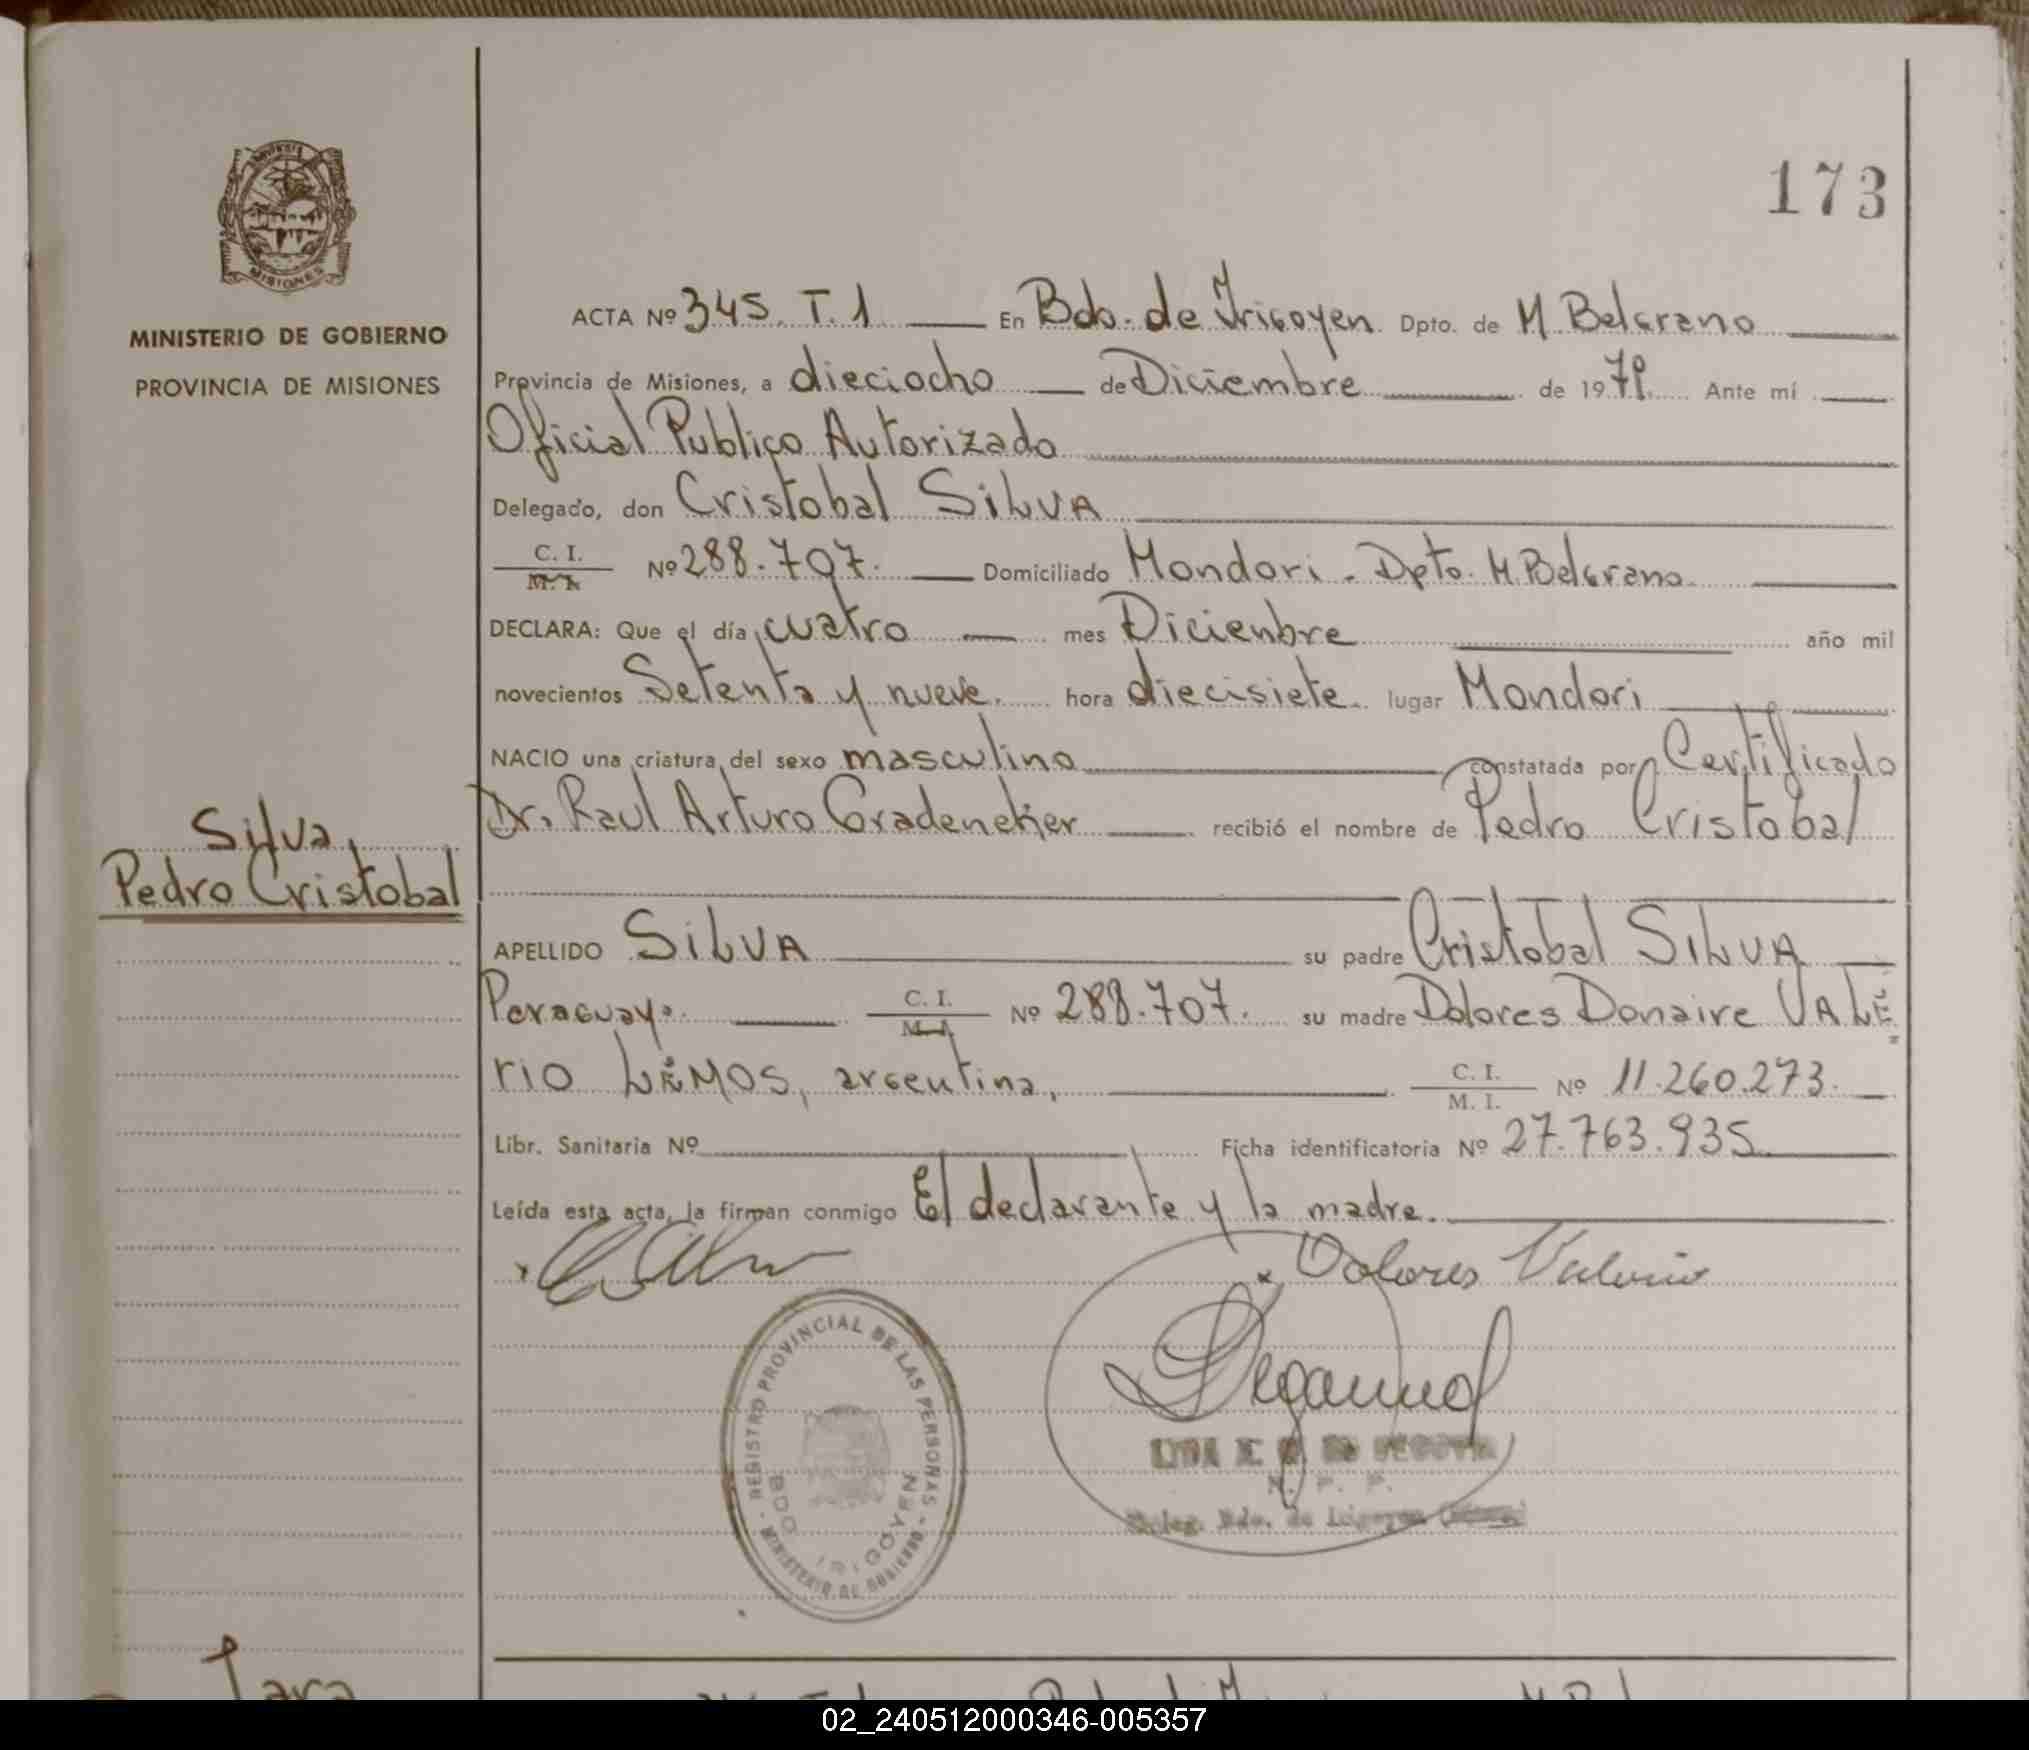 173
MISIONES
MINISTERIO DE GOBIERNO
PROVINCIA DE MISIONES
Silva,
Pedro Cristobal
ACTA Nº 345. T. 1 En Bdo. de Yrigoyen Dpto. de M Belgrano
Provincia de Misiones, a dieciocho de Diciembre de 1979. Ante mí
Oficial Publico Autorizado
Delegado, don Cristobal SILVA
C. I.
M. I. Nº 288.707. Domiciliado Mondori - Dpto. M. Belgrano
DECLARA: Que el día cuatro mes Dicienbre año mil
novecientos Setenta y nueve. hora diecisiete. lugar Mondori
NACIO una criatura del sexo masculino constatada por Certificado
Dr. Raul Arturo Gradeneker recibió el nombre de Pedro Cristobal
APELLIDO SILVA su padre Cristobal SILVA
Paraguayo. C. I.
M. I. Nº 288.707. su madre Dolores Donaire VALE
RIO LEMOS, argentina, C. I.
M. I. Nº 11.260.273.
Libr. Sanitaria Nº Ficha identificatoria Nº 27.763.935
Leída esta acta, la firman conmigo El declarante y la madre.
Dolores Valerio
REGISTRO PROVINCIAL DE LAS PERSONAS - MINISTERIO DE GOBIERNO -
BDO IRIGOYEN
SEGOVIA
Deleg. Bdo. de Irigoyen
Jara
02_240512000346-005357